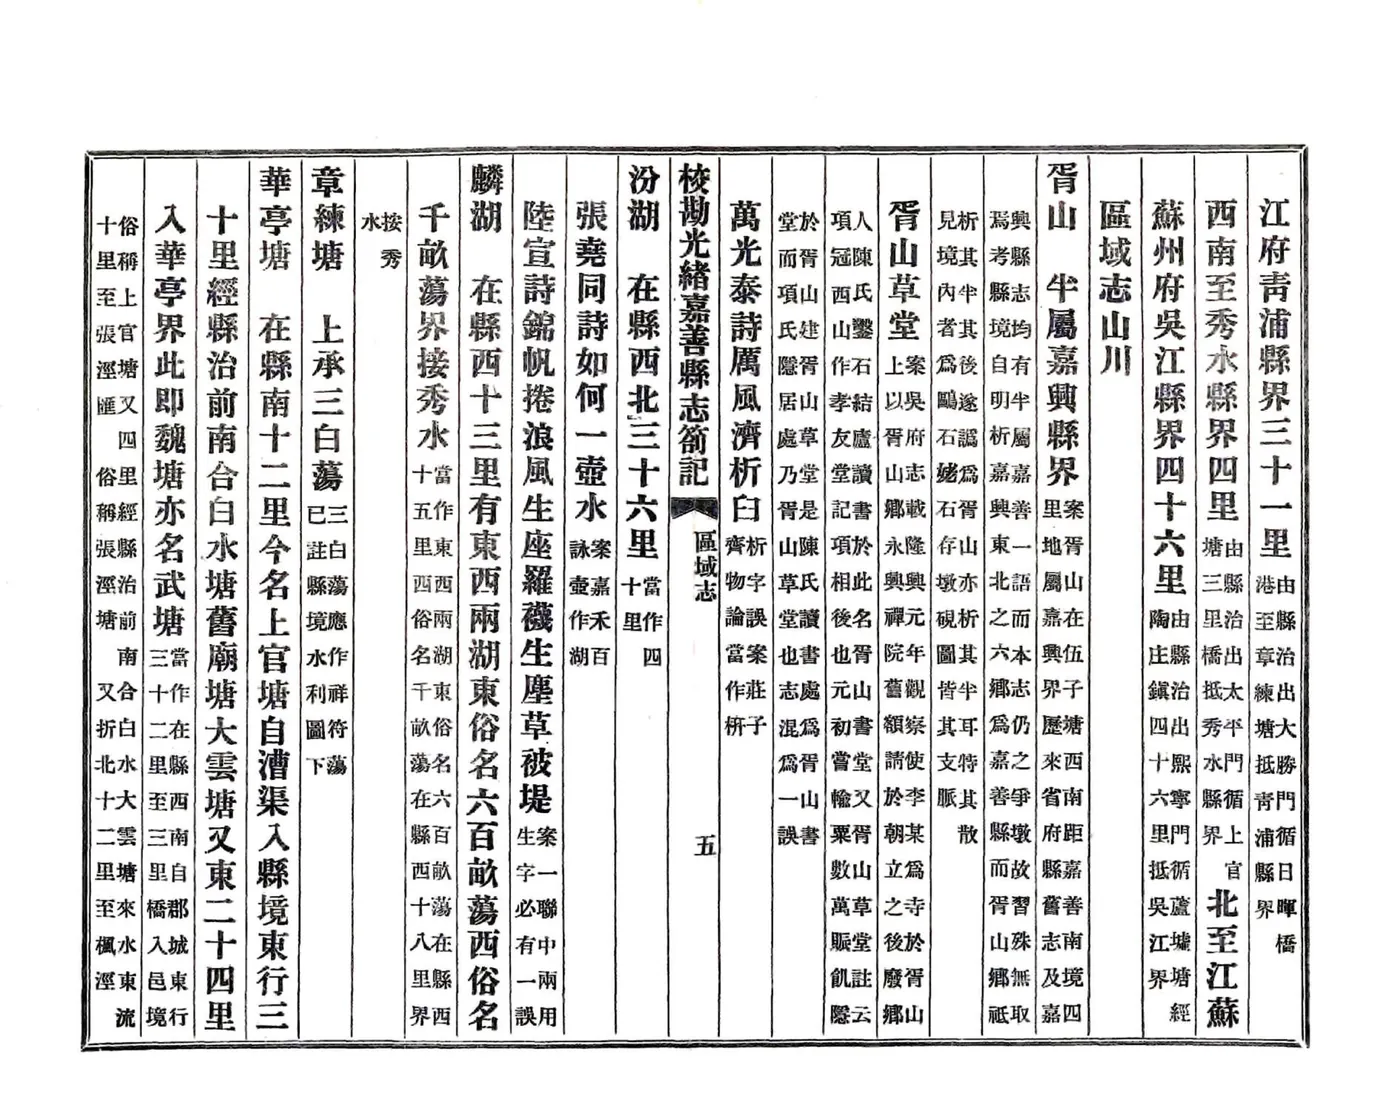 江府青浦縣界三十一里由縣治出大勝門循日暉橋港至章練塘抵青浦縣界
西南至秀水縣界四里由縣治出太平門循上官塘三里橋抵秀水縣界北至江蘇
蘇州府吳江縣界四十六里由縣治出熙寧門循蘆墟塘經陶庄鎮四十六里抵吳江界
區域志山川
胥山　半屬嘉興縣界案胥山在伍子塘西南距嘉善南境四里地屬嘉興界歷來省府縣舊志及嘉
興縣志均有半屬嘉善一語而本志仍之爭墩故習殊無取焉考縣境自明析嘉興東北之六鄉為嘉善縣而胥山鄉祗
析其半其後遂譌為胥山亦析其半耳特其散見境內者為鷗石磥石存墩硯圖皆其支脈
胥山草堂案吳府志載隆興元年觀察使李某為寺於胥山上以胥山鄉永興禪院舊額請於朝立之後廢鄉
人陳氏鑿石結廬讀書於此名胥山書堂又胥山草堂註云項冠西山作孝友堂記項相後也元初嘗輸粟數萬賑飢隱
於胥山建胥山草堂是陳氏讀書處為胥山書堂而項氏隱居處乃胥山草堂也志混為一誤
萬光泰詩厲風濟析臼析字誤案莊子齊物論當作枅
校勘光緒嘉善縣志劄記　區域志　五
汾湖　在縣西北三十六里當作四十里
張堯同詩如何一壺水案嘉禾百詠壺作湖
陸宣詩錦帆捲浪風生座羅襪生塵草被堤案一聯中兩用生字必有一誤
麟湖　在縣西十三里有東西兩湖東俗名六百畝蕩西俗名
千畝蕩界接秀水當作東西兩湖東俗名六百畝蕩在縣西十五里西俗名千畝蕩在縣西十八里界
接秀水
章練塘　上承三白蕩三白蕩應作祥符蕩已註縣境水利圖下
華亭塘　在縣南十二里今名上官塘自漕渠入縣境東行三
十里經縣治前南合白水塘舊廟塘大雲塘又東二十四里
入華亭界此即魏塘亦名武塘當作在縣西南自郡城東行三十二里至三里橋入邑境
俗稱上官塘又四里經縣治前南合白水大雲塘來水東流十里至張涇匯　俗稱張涇塘　又折北十二里至楓涇